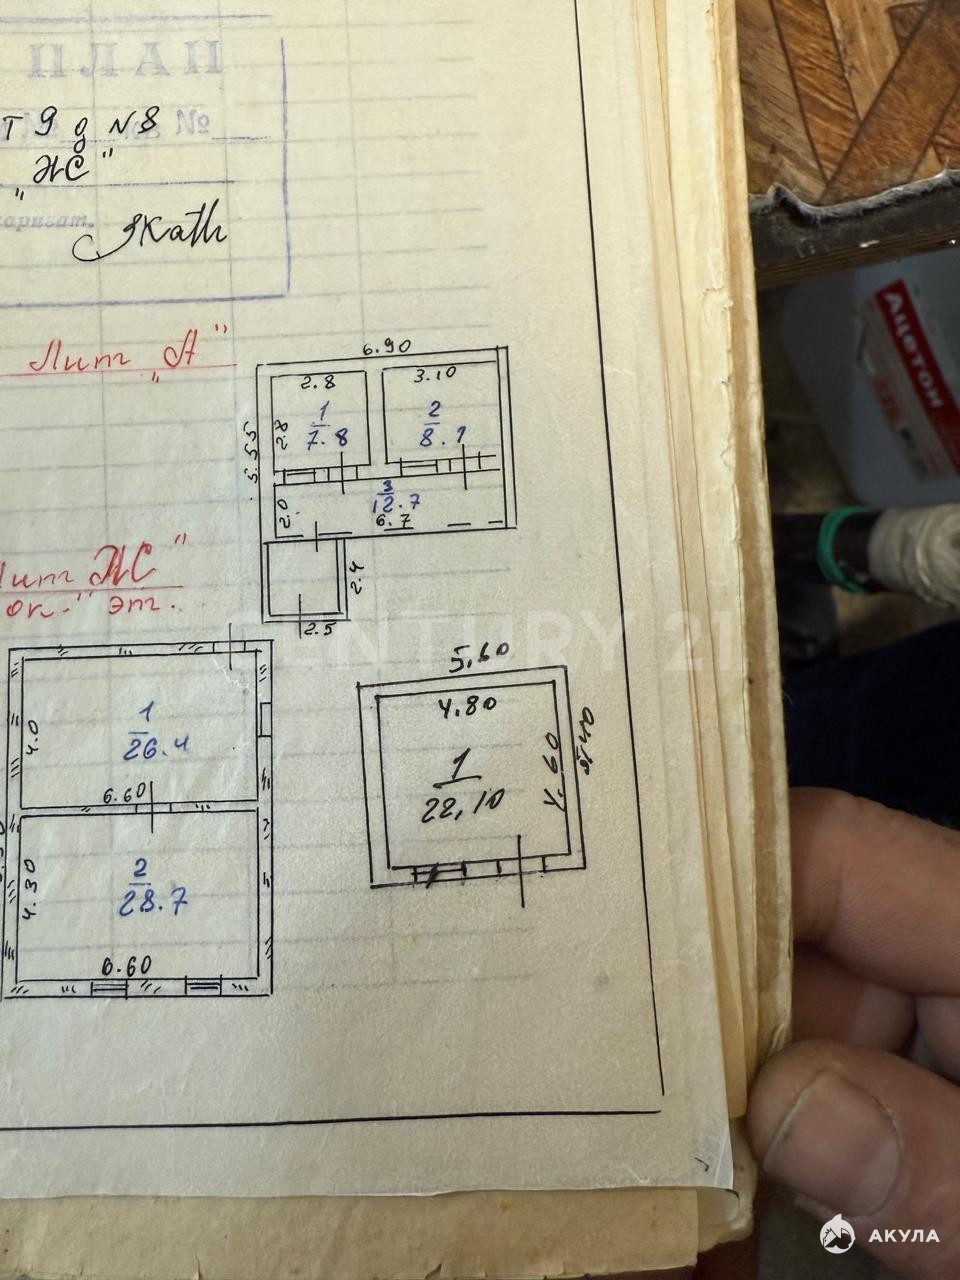 ПЛАН
т 9 д N8 №
"ЖС"
Лит "А"
6.90
2.8
3.10
5.55
2.8
1
7.8
2
8.7
3
12.7
2.0
6.7
2.4
2.5
Лит ЖС"
ок." эт.
1
26.4
4.0
6.60
2
28.7
4.30
6.60
5,60
4.80
1
22,10
4.60
Ацетон
CENTURY 21
АКУЛА